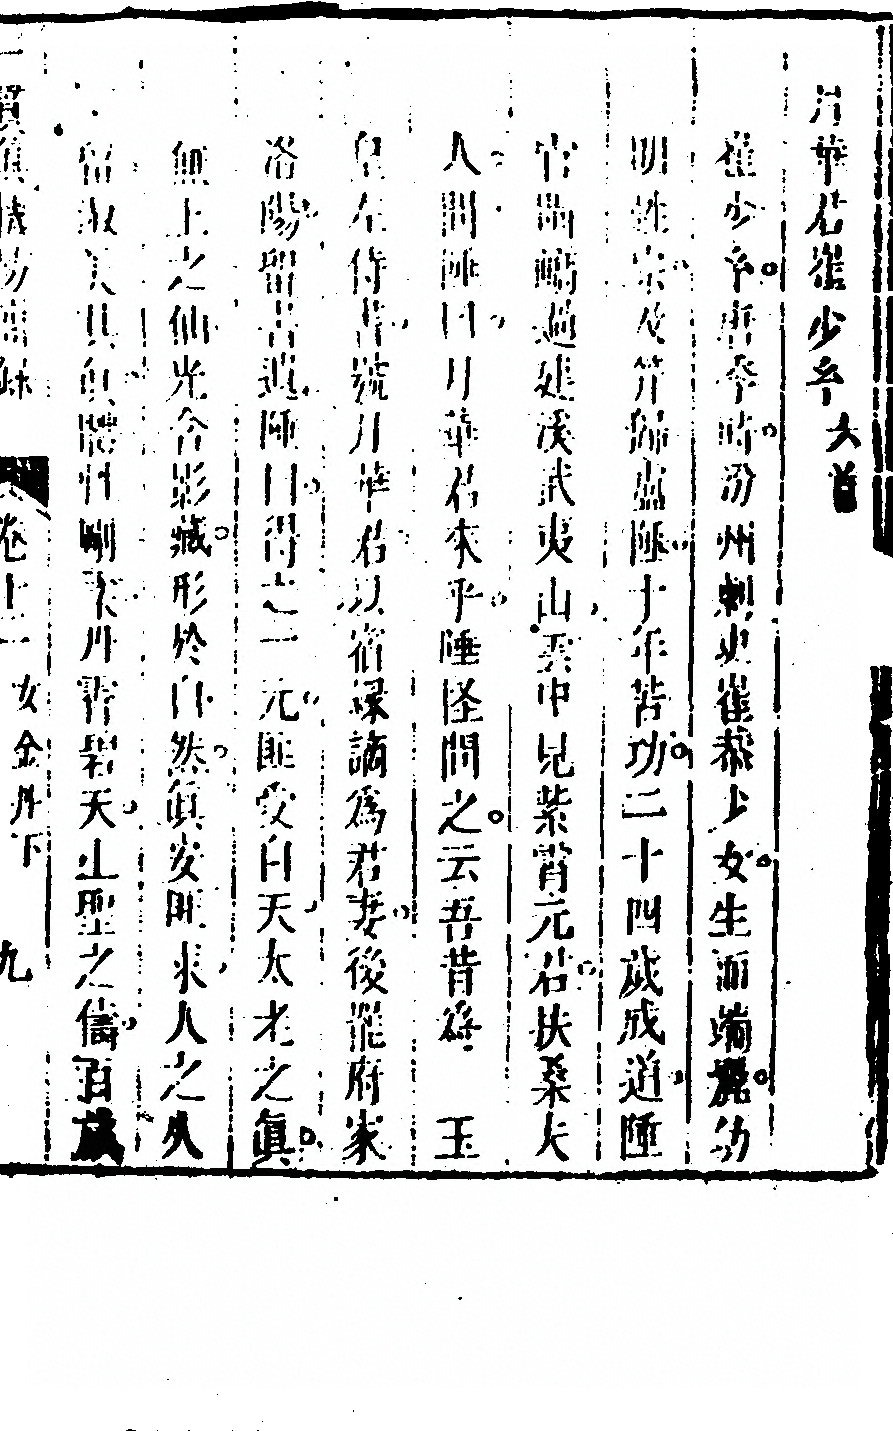 月華君崔少玄 六首
崔少玄唐季時汾州刺史崔恭少女生而端麗幼
明性宗及笄歸盧陲十年苦功二十四歲成道陲
官閩嶠過建溪武夷山雲中見紫霄元君扶桑夫
人問陲曰月華君來乎陲怪問之云吾昔為 玉
皇左侍書號月華君以宿緣謫為君妻後罷府家
洛陽留書遺陲曰得之一元匪受自天太老之真
無上之仙光含影藏形於自然真安匪求人之久
留淑美其真體性剛柔丹霄碧天上聖之儔百歲
卷十二 女金丹下 九